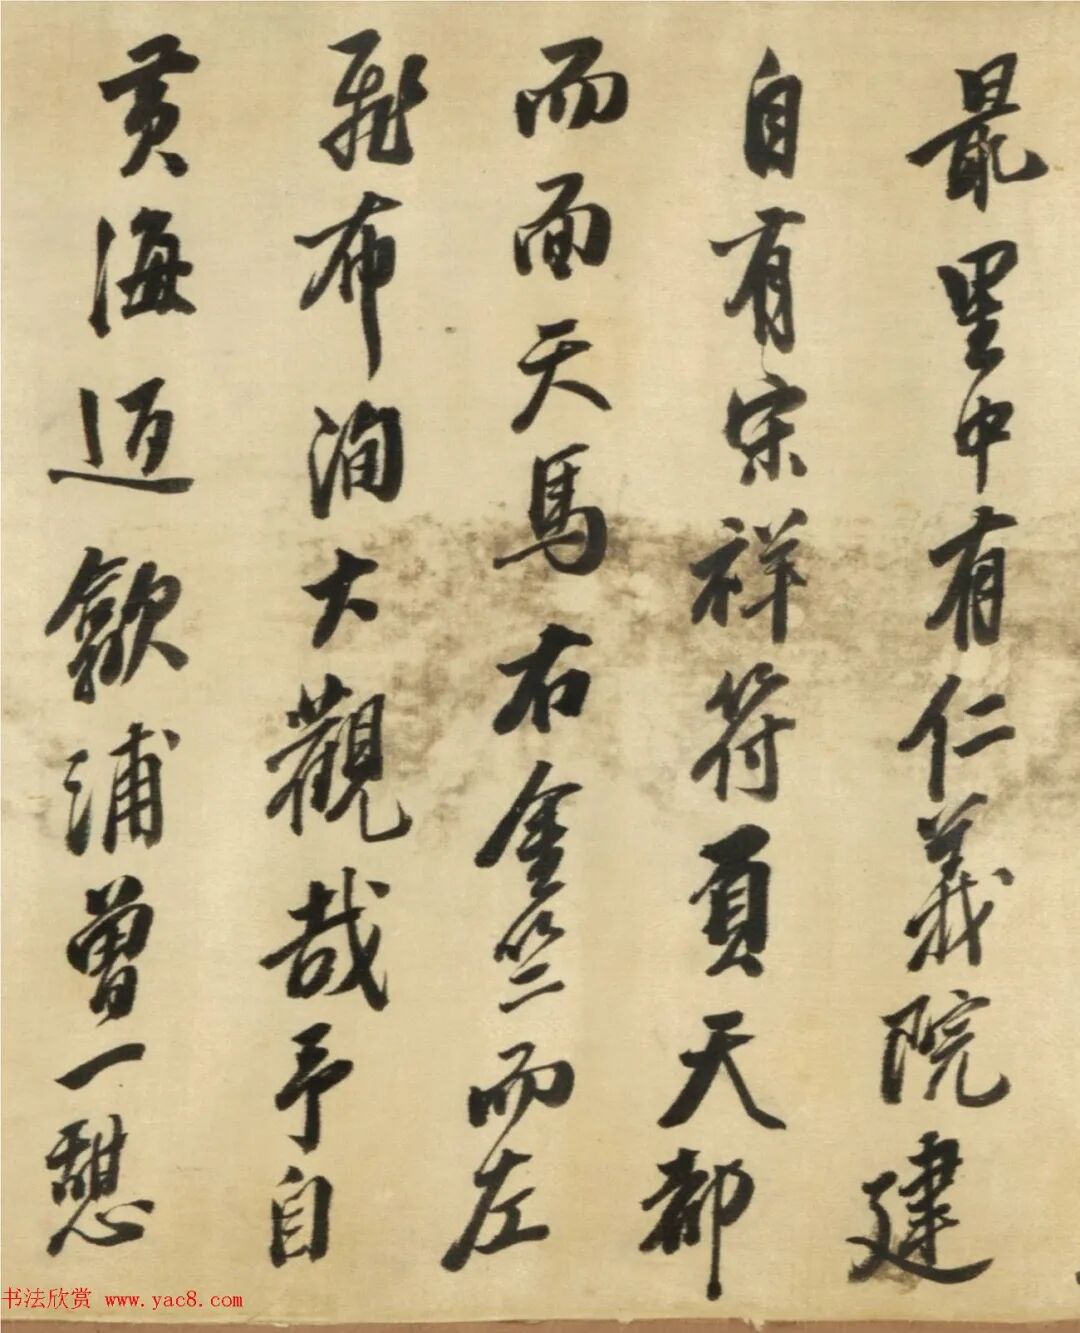 最里中有仁義院建
自有宋祥符負天都
而面天馬右金竺而左
飛布洵大觀哉予自
黃海迈歙浦曾一憇
书法欣赏 www.yac8.com